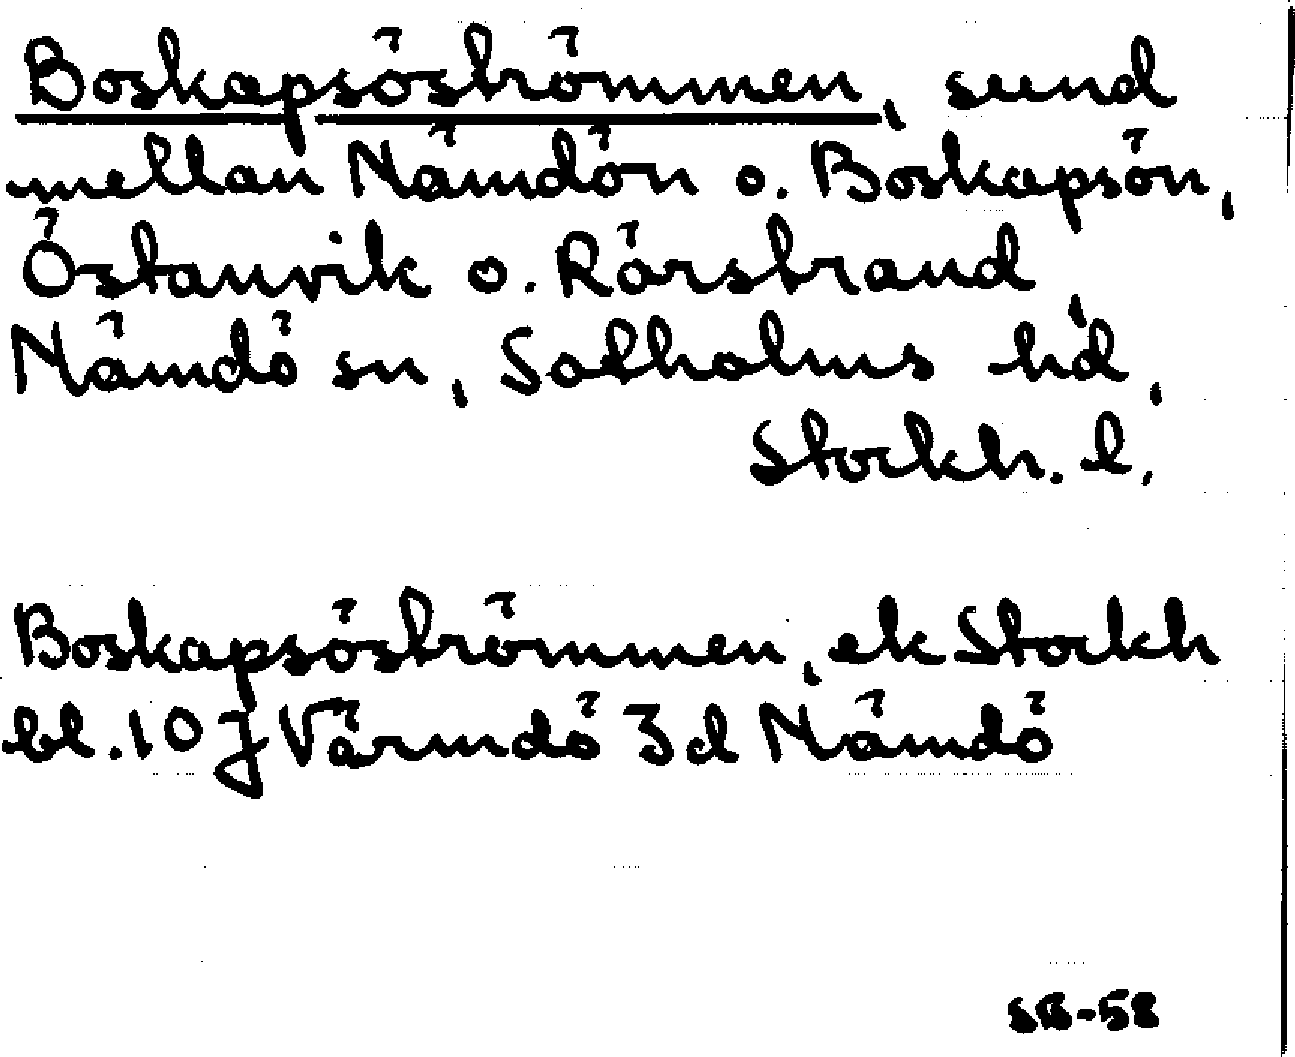 Boskapsöströmmen, sund
mellan Nämdön o. Boskapsön,
Östanvik o. Rörstrand,
Nämdö sn, Solholms hd,
Stockh. l.
Boskapsöströmmen, ek Stockh
bl. 10 J Värmdö 3d Nämdö
SB-58